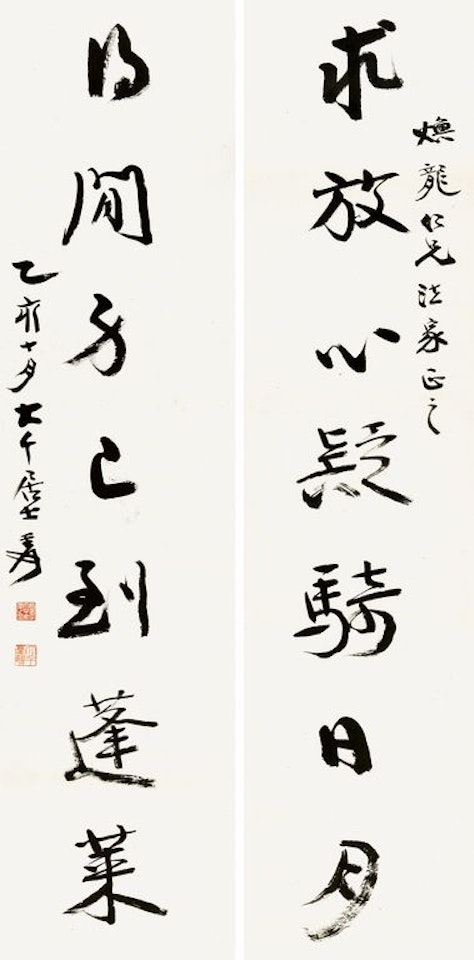 龍仁兄法家正之
求放心疑騎日月
得閒身已到蓬萊
乙亥十月大千居士爰